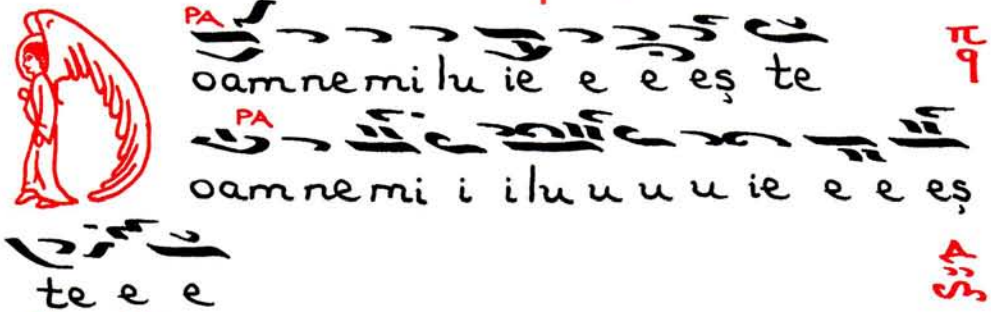 PA
oamnemilu ie e e eș te
π
q
PA
oamnemi i ilu u u u ie e e eș
te e e